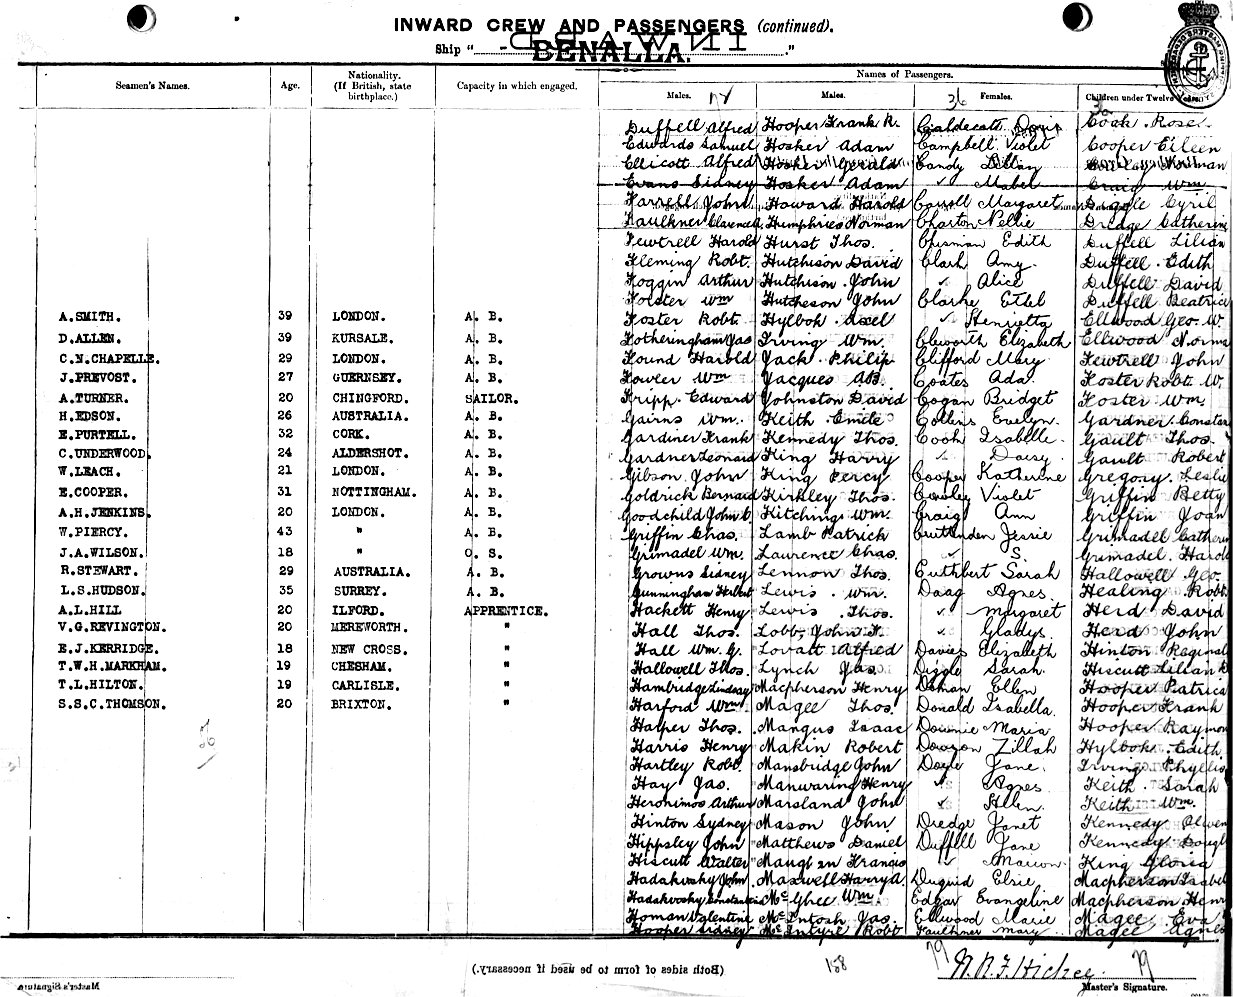 INWARD CREW AND PASSENGERS (continued).
Ship "BENALLA."
Names of Passengers.
Seamen's Names. Age. Nationality. (If British, state birthplace.) Capacity in which engaged. Males. Males. 36 Females. Children under Twelve Years.
Duffell Alfred Hooper Frank R. Caldecott Doris Cook Rose
Edwards Samuel Hosker Adam Campbell Violet Cooper Eileen
Ellicott Alfred Hosker Gerald Candy Lillian Norman
Evans Sidney Hosker Adam " Mabel Craig Wm
Farrell John Howard Harold Carroll Margaret Diggle Cyril
Faulkner Clarence A. Humphries Norman Charton Nellie Dredge Catherine
Fewtrell Harold Hurst Thos. Chisman Edith Duffell Lilian
Fleming Robt. Hutchison David Clark Amy Duffell Edith
Foggin Arthur Hutchison John " Alice Duffell David
Folster Wm Hutcheson John Clarke Ethel Duffell Beatrice
A.SMITH. 39 LONDON. A. B. Foster Robt. Hylboh Axel " Henrietta Ellwood Geo. W.
D.ALLEN. 39 KURSALE. A. B. Fotheringham Jas Irving Wm. Cleworth Elizabeth Ellwood Norma
C.N.CHAPELLE. 29 LONDON. A. B. Found Harold Jack Philip Clifford Mary Fewtrell John
J.PREVOST. 27 GUERNSEY. A. B. Fowler Wm Jacques Ab. Coates Ada Foster Robt W.
A.TURNER. 20 CHINGFORD. SAILOR. Fripp Edward Johnston David Cogan Bridget Foster Wm
H.EDSON. 26 AUSTRALIA. A. B. Gairns Wm. Keith Emile Collins Evelyn Gardner Constan
E.PURTELL. 32 CORK. A. B. Gardiner Frank Kennedy Thos. Cook Isabelle Gault Thos.
C.UNDERWOOD. 24 ALDERSHOT. A. B. Gardner Leonard King Harry " Daisy Gault Robert
W.LEACH. 21 LONDON. A. B. Gibson John King Percy Cooper Katherine Gregory Leslie
E.COOPER. 31 NOTTINGHAM. A. B. Goldrick Bernard Kirkley Thos. Cowley Violet Griffin Betty
A.H.JENKINS. 20 LONDON. A. B. Goodchild John C. Kitching Wm. Craig Ann Griffin Joan
W.PIERCY. 43 " A. B. Griffin Chas. Lamb Patrick Cruttenden Jessie Grimadel Catherin
J.A.WILSON. 18 " O. S. Grimadel Wm. Laurence Chas. " S. Grimadel Harold
R.STEWART. 29 AUSTRALIA. A. B. Growns Sidney Lennon Thos. Cuthbert Sarah Hallowell Geo.
L.S.HUDSON. 35 SURREY. A. B. Gunningham Herbert Lewis Wm. Daag Agnes Healing Robt.
A.L.HILL 20 ILFORD. APPRENTICE. Hackett Henry Lewis Thos. " Margaret Herd David
V.G.REVINGTON. 20 MEREWORTH. " Hall Thos. Lobb John F. " Gladys Herd John
E.J.KERRIDGE. 18 NEW CROSS. " Hall Wm. G. Lovatt Alfred Davies Elizabeth Hinton Reginal
T.W.H.MARKHAM. 19 CHESHAM. " Hallowell Thos. Lynch Jas. Diggle Sarah Hiscutt Lilian
T.L.HILTON. 19 CARLISLE. " Hambridge Lindsay Macpherson Henry Ellen Hooper Patrica
S.S.C.THOMSON. 20 BRIXTON. " Harford Wm. Magee Thos. Donald Isabella Hooper Frank
Harper Thos. Mangus Isaac Downie Maria Hooper Raymon
Harris Henry Makin Robert Dowson Zillah Hylboh Edith
Hartley Robt. Mansbridge John Doyle Jane Irving Phyllis
Hay Jas. Manwaring Henry " Agnes Keith Sarah
Heronimos Arthur Marsland John " Ellen Keith Wm.
Hinton Sydney Mason John Dredge Janet Kennedy Olwen
Hippsley John Matthews Daniel Duffell Jane Kennedy Dougl
Hiscutt Walter Francis " Marion King Gloria
Hadakusky John Maxwell Harry A. Duguid Elsie Macpherson Isabel
Hadakusky Constantine McGhee Wm Edgar Evangeline Macpherson Henr
Homan Valentine McIntosh Jas. Ellwood Marie Magee Eva
Hooper Sidney McIntyre Robt Faulkner Mary Magee Agnes
(Both sides of form to be used if necessary.) 158 79 79
Master's Signature. Master's Signature.